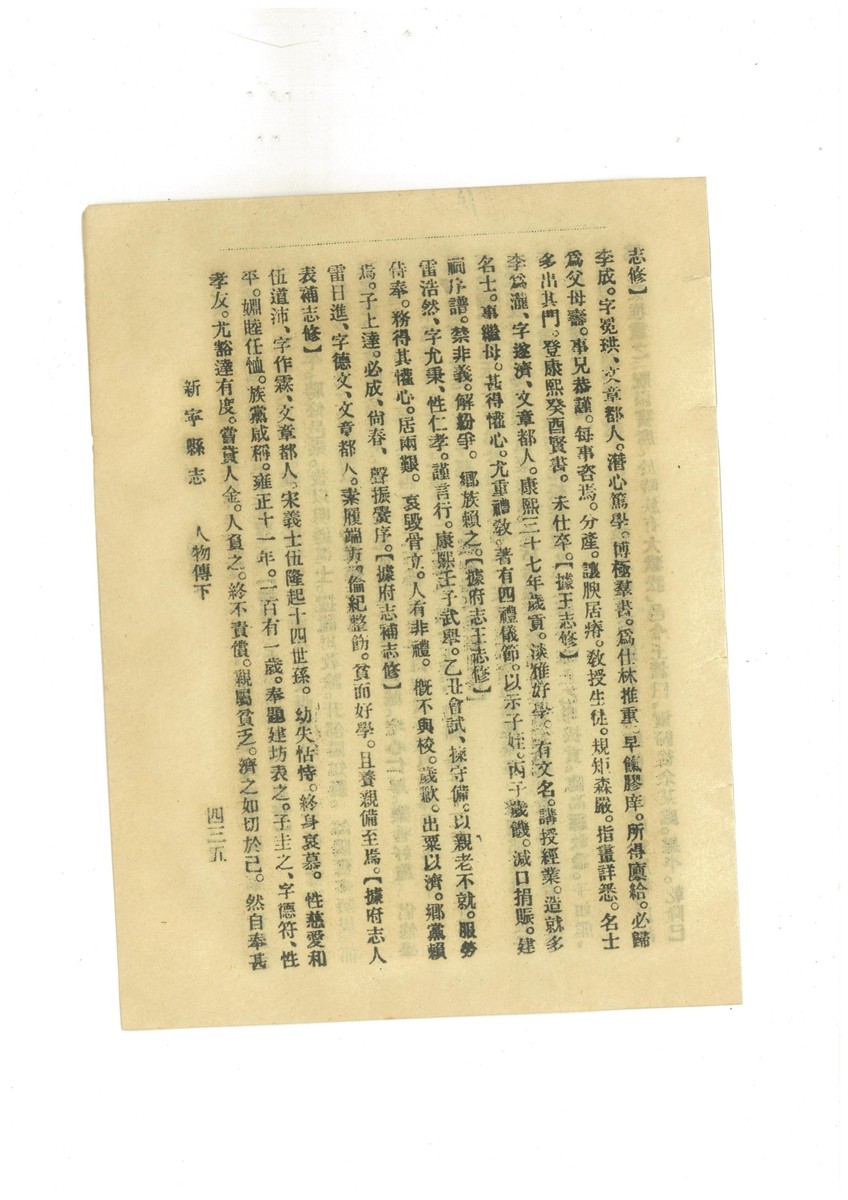 志修】
李成。字冕珙、文章都人。潛心篤學。博極羣書。爲仕林推重。早餼膠庠。所得廩給。必歸
爲父母壽。事兄恭謹。每事咨焉。分產。讓腴居瘠。敎授生徒。規矩森嚴。指畫詳悉。名士
多出其門。登康熙癸酉賢書。未仕卒。【據王志修】
李爲瀧、字遂濟、文章都人。康熙三十七年歲貢。淡雅好學。有文名。講授經業。造就多
名士。事繼母。甚得懽心。尤重禮敎。著有四禮儀節。以示子姪。丙子歲饑。減口捐賑。建
祠序譜。禁非義。解紛爭。鄕族賴之。【據府志王志修】
雷浩然、字允秉、性仁孝。謹言行。康熙壬子武舉。乙丑會試、揀守備。以親老不就。服勞
侍奉。務得其懽心。居兩艱。哀毀骨立。人有非禮。槪不與校。歲歉。出粟以濟。鄕黨賴
焉。子上達。必成、尙春、聲振黌序。【據府志補志修】
雷日進、字德文、文章都人。素履端方。倫紀整飭。貧而好學。且養親備至焉。【據府志人
表補志修】
伍道沛、字作霖、文章都人、宋義士伍隆起十四世孫。幼失怙恃。終身哀慕。性慈愛和
平。婣睦任恤。族黨咸稱。雍正十一年。一百有一歲。奉題建坊表之。子圭之、字德符、性
孝友。尤豁達有度。嘗貸人金。人負之。終不責償。親屬貧乏。濟之如切於己。然自奉甚
新寧縣志 人物傳下
四三五